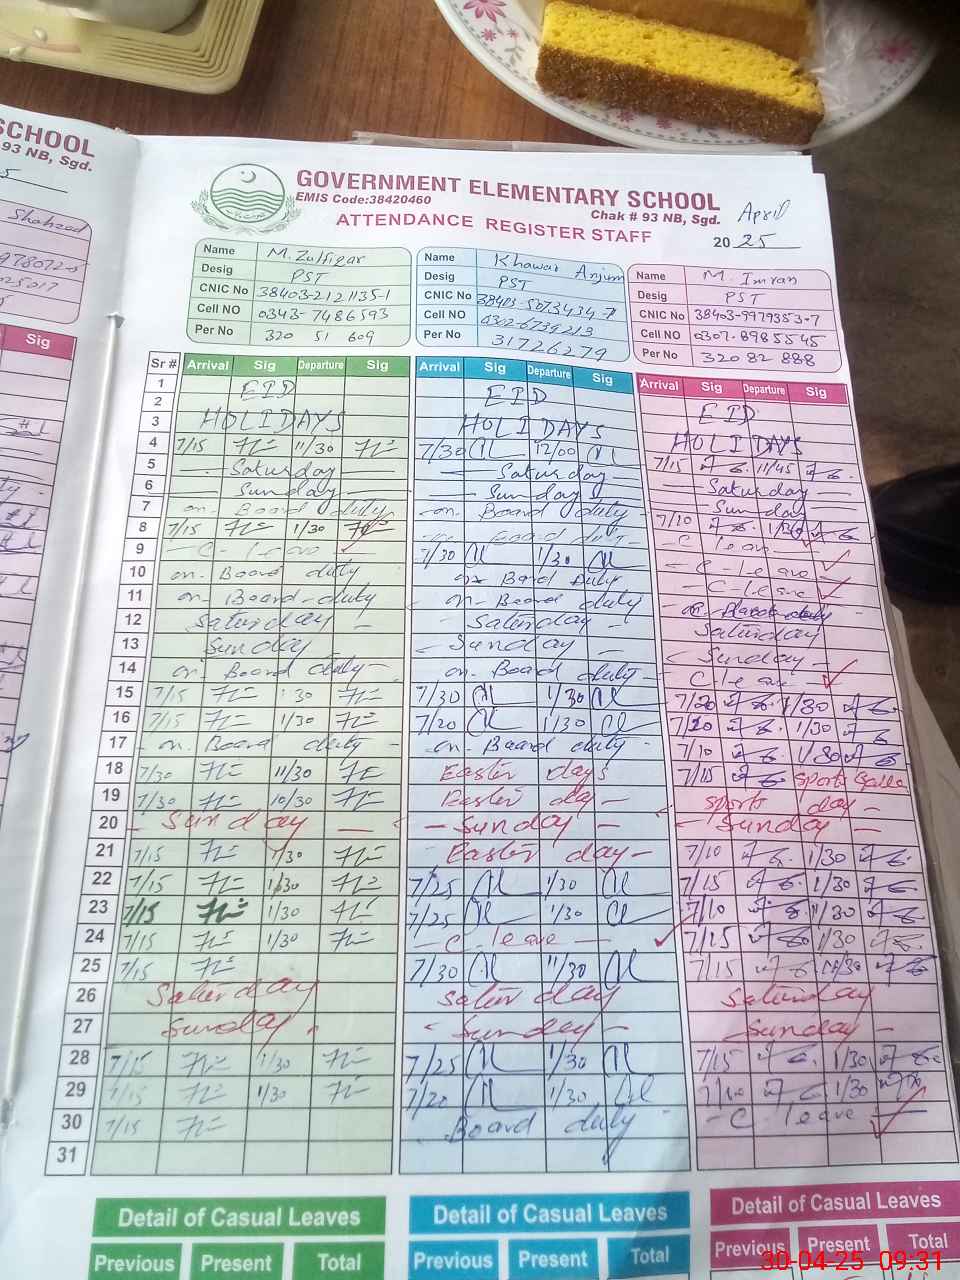 SCHOOL
93 NB, Sgd.
5
Shahzad
Sig
GOVERNMENT ELEMENTARY SCHOOL
EMIS Code:38420460
Chak # 93 NB, Sgd.
April
ATTENDANCE REGISTER STAFF
20 25
Name M. Zulfiqar
Desig PST
CNIC No 38403-2121135-1
Cell NO 0343-7486593
Per No 320 51 609
Name Khawar Anjum
Desig PST
CNIC No 38403-5073434-7
Cell NO 0302-6739213
Per No 31726279
Name M. Imran
Desig PST
CNIC No 38403-9979353-7
Cell NO 0307-8985545
Per No 320 82 888
Sr # Arrival Sig Departure Sig Arrival Sig Departure Sig Arrival Sig Departure Sig
1 EID EID EID
2
3 HOLIDAYS HOLIDAYS HOLIDAYS
4 7/15 11/30 7/30 12/00 7/15 11/45
5 Saturday Saturday Saturday
6 Sunday Sunday Sunday
7 on. Board duty on. Board duty 7/10
8 7/15 1/30 Board duty C leave
9 C- leave 7/30 1/30 C-leave
10 on. Board duty on Board Duty C leave
11 on. Board-duty on- Board duty on- Board duty
12 Saturday Saturday Saturday
13 Sunday Sunday Sunday
14 on. Board duty on. Board duty C leave
15 7/15 1:30 7/30 1/30 7/20 1/30
16 7/15 1/30 7/20 1/30 7/20 1/30
17 on. Board duty on- Board duty 7/10 1/30
18 7/30 11/30 Easter days 7/15 sports
19 7/30 10/30 Easter day sports day
20 Sunday Sunday Sunday
21 7/15 1/30 Easter day 7/10 1/30
22 7/15 1/30 7/25 1/30 7/15 1/30
23 7/15 1/30 7/25 1/30 7/10 1/30
24 7/15 1/30 C. leave 7/15 1/30
25 7/15 7/30 11/30 7/15
26 Saturday Saturday Saturday
27 Sunday Sunday Sunday
28 7/15 1/30 7/25 1/30 7/15 1/30
29 7/15 1/30 7/20 1/30 7/10 1/30
30 7/15 Board duty C. leave
31
Detail of Casual Leaves Detail of Casual Leaves Detail of Casual Leaves
Previous Present Total Previous Present Total Previous Present Total
30-04-25 09:31